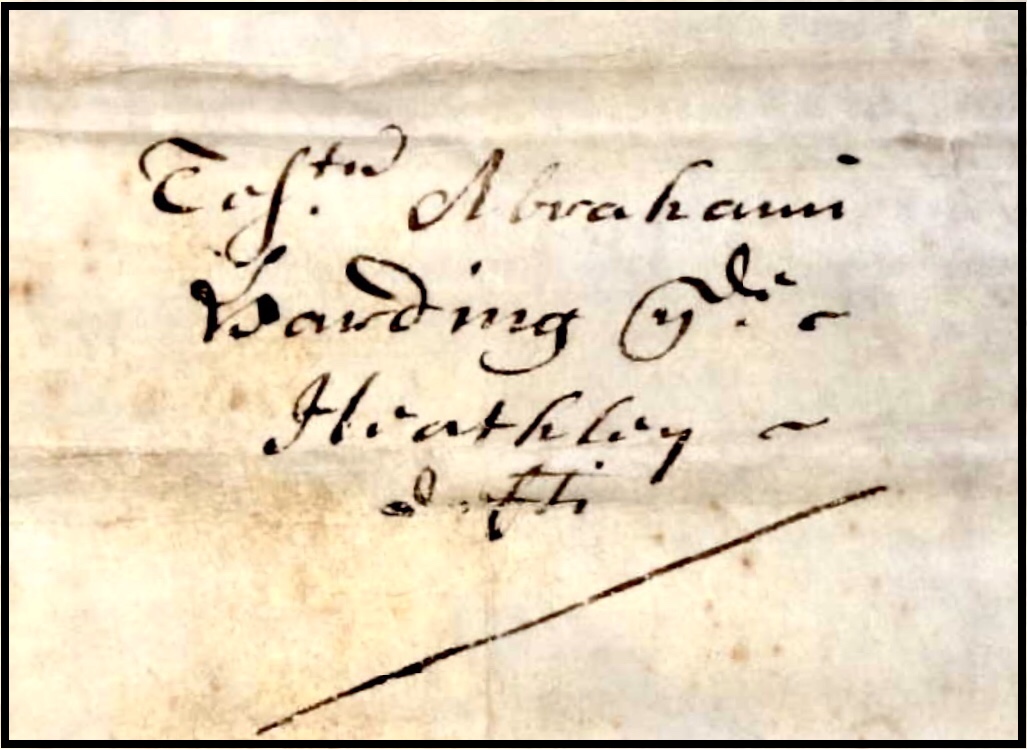 Test.m Abrahami
Harding de
Heathley
defti